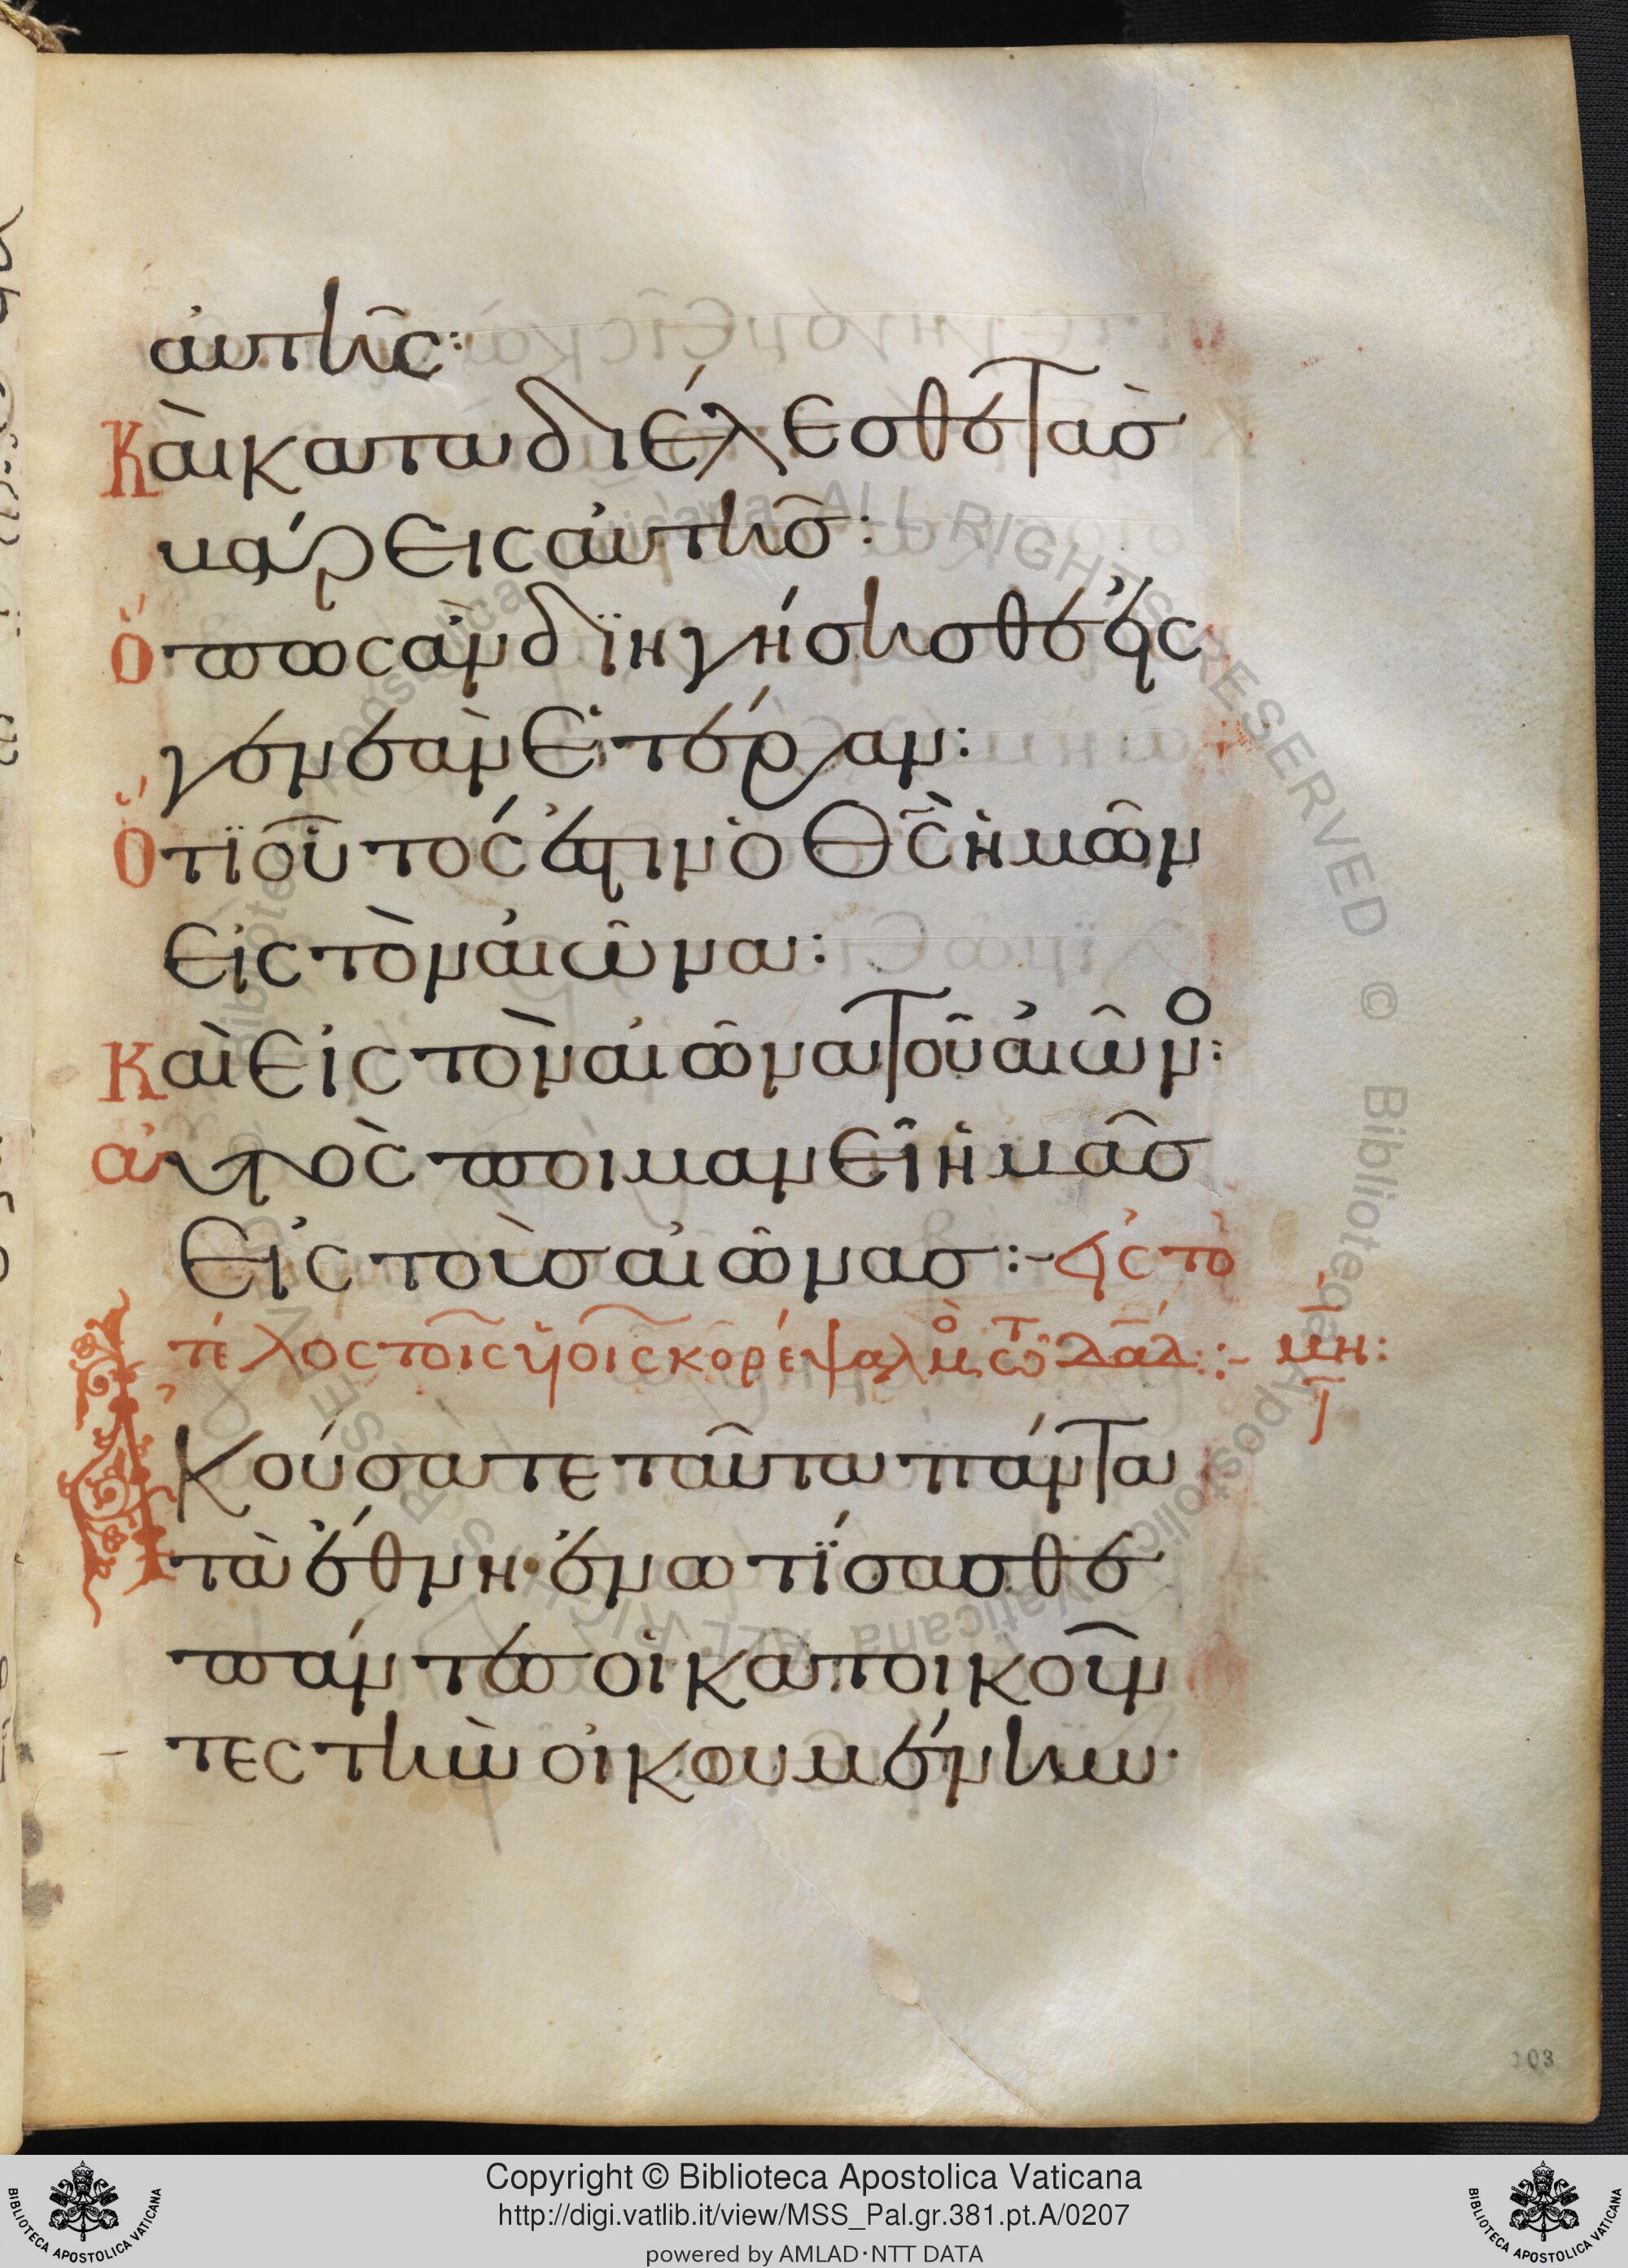 αὐτῆς:
Καὶ καταδιέλεσθε τὰσ
βάρεις αὐτῆσ:
Ὅπως ἂν διηγήσησθε εἰς
γενεὰν ἑτέραν:
Ὅτι οὗτός ἐστιν ὁ Θ̅Σ̅ ἡμῶν
εἰς τὸν αἰῶνα:
Καὶ εἰς τὸν αἰῶνα τοῦ αἰῶνο:
αὐτὸς ποιμανεῖ ἡμᾶσ
εἰς τοὺσ αἰῶνασ:- εἰς τὸ
τέλος τοῖς υἱοῖς κορέ ψαλμὸ τῶ δαδ:- μη:
Ἀκούσατε ταῦτα πάντα
τὰ ἔθνη· ἐνωτίσασθε
πάντεσ οἱ κατοικοῦν
τες τὴν οἰκουμένην·
103
Copyright © Biblioteca Apostolica Vaticana
http://digi.vatlib.it/view/MSS_Pal.gr.381.pt.A/0207
powered by AMLAD·NTT DATA
BIBLIOTECA APOSTOLICA VATICANA
BIBLIOTECA APOSTOLICA VATICANA